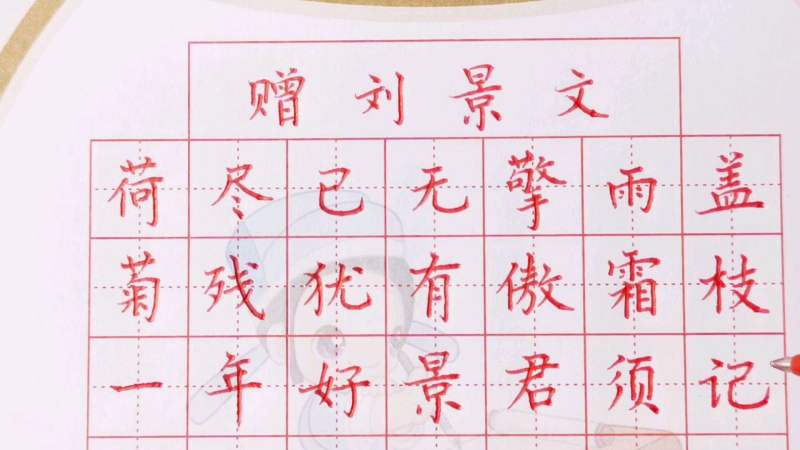 赠刘景文
荷尽已无擎雨盖
菊残犹有傲霜枝
一年好景君须记